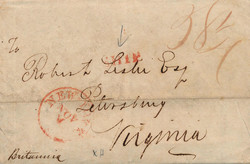 To
Robert Leslie Esq
Petersburg
Virginia
Britannia
SHIP
NEW
NOV